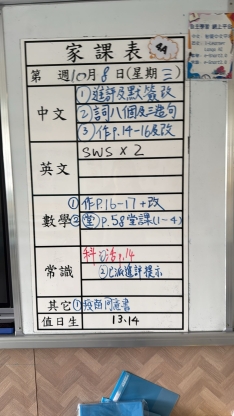 家課表 4A
第 週10月8日(星期三)
中文
①進評及默簽改
②詞八個及三造句
③作P.14-16及改
英文
SWS x 2
數學
①作P.16-17+改
②(堂)P.58堂課(1-4)
常識
科 活 P.14
②已派進評提示
其它
值日生
13.14